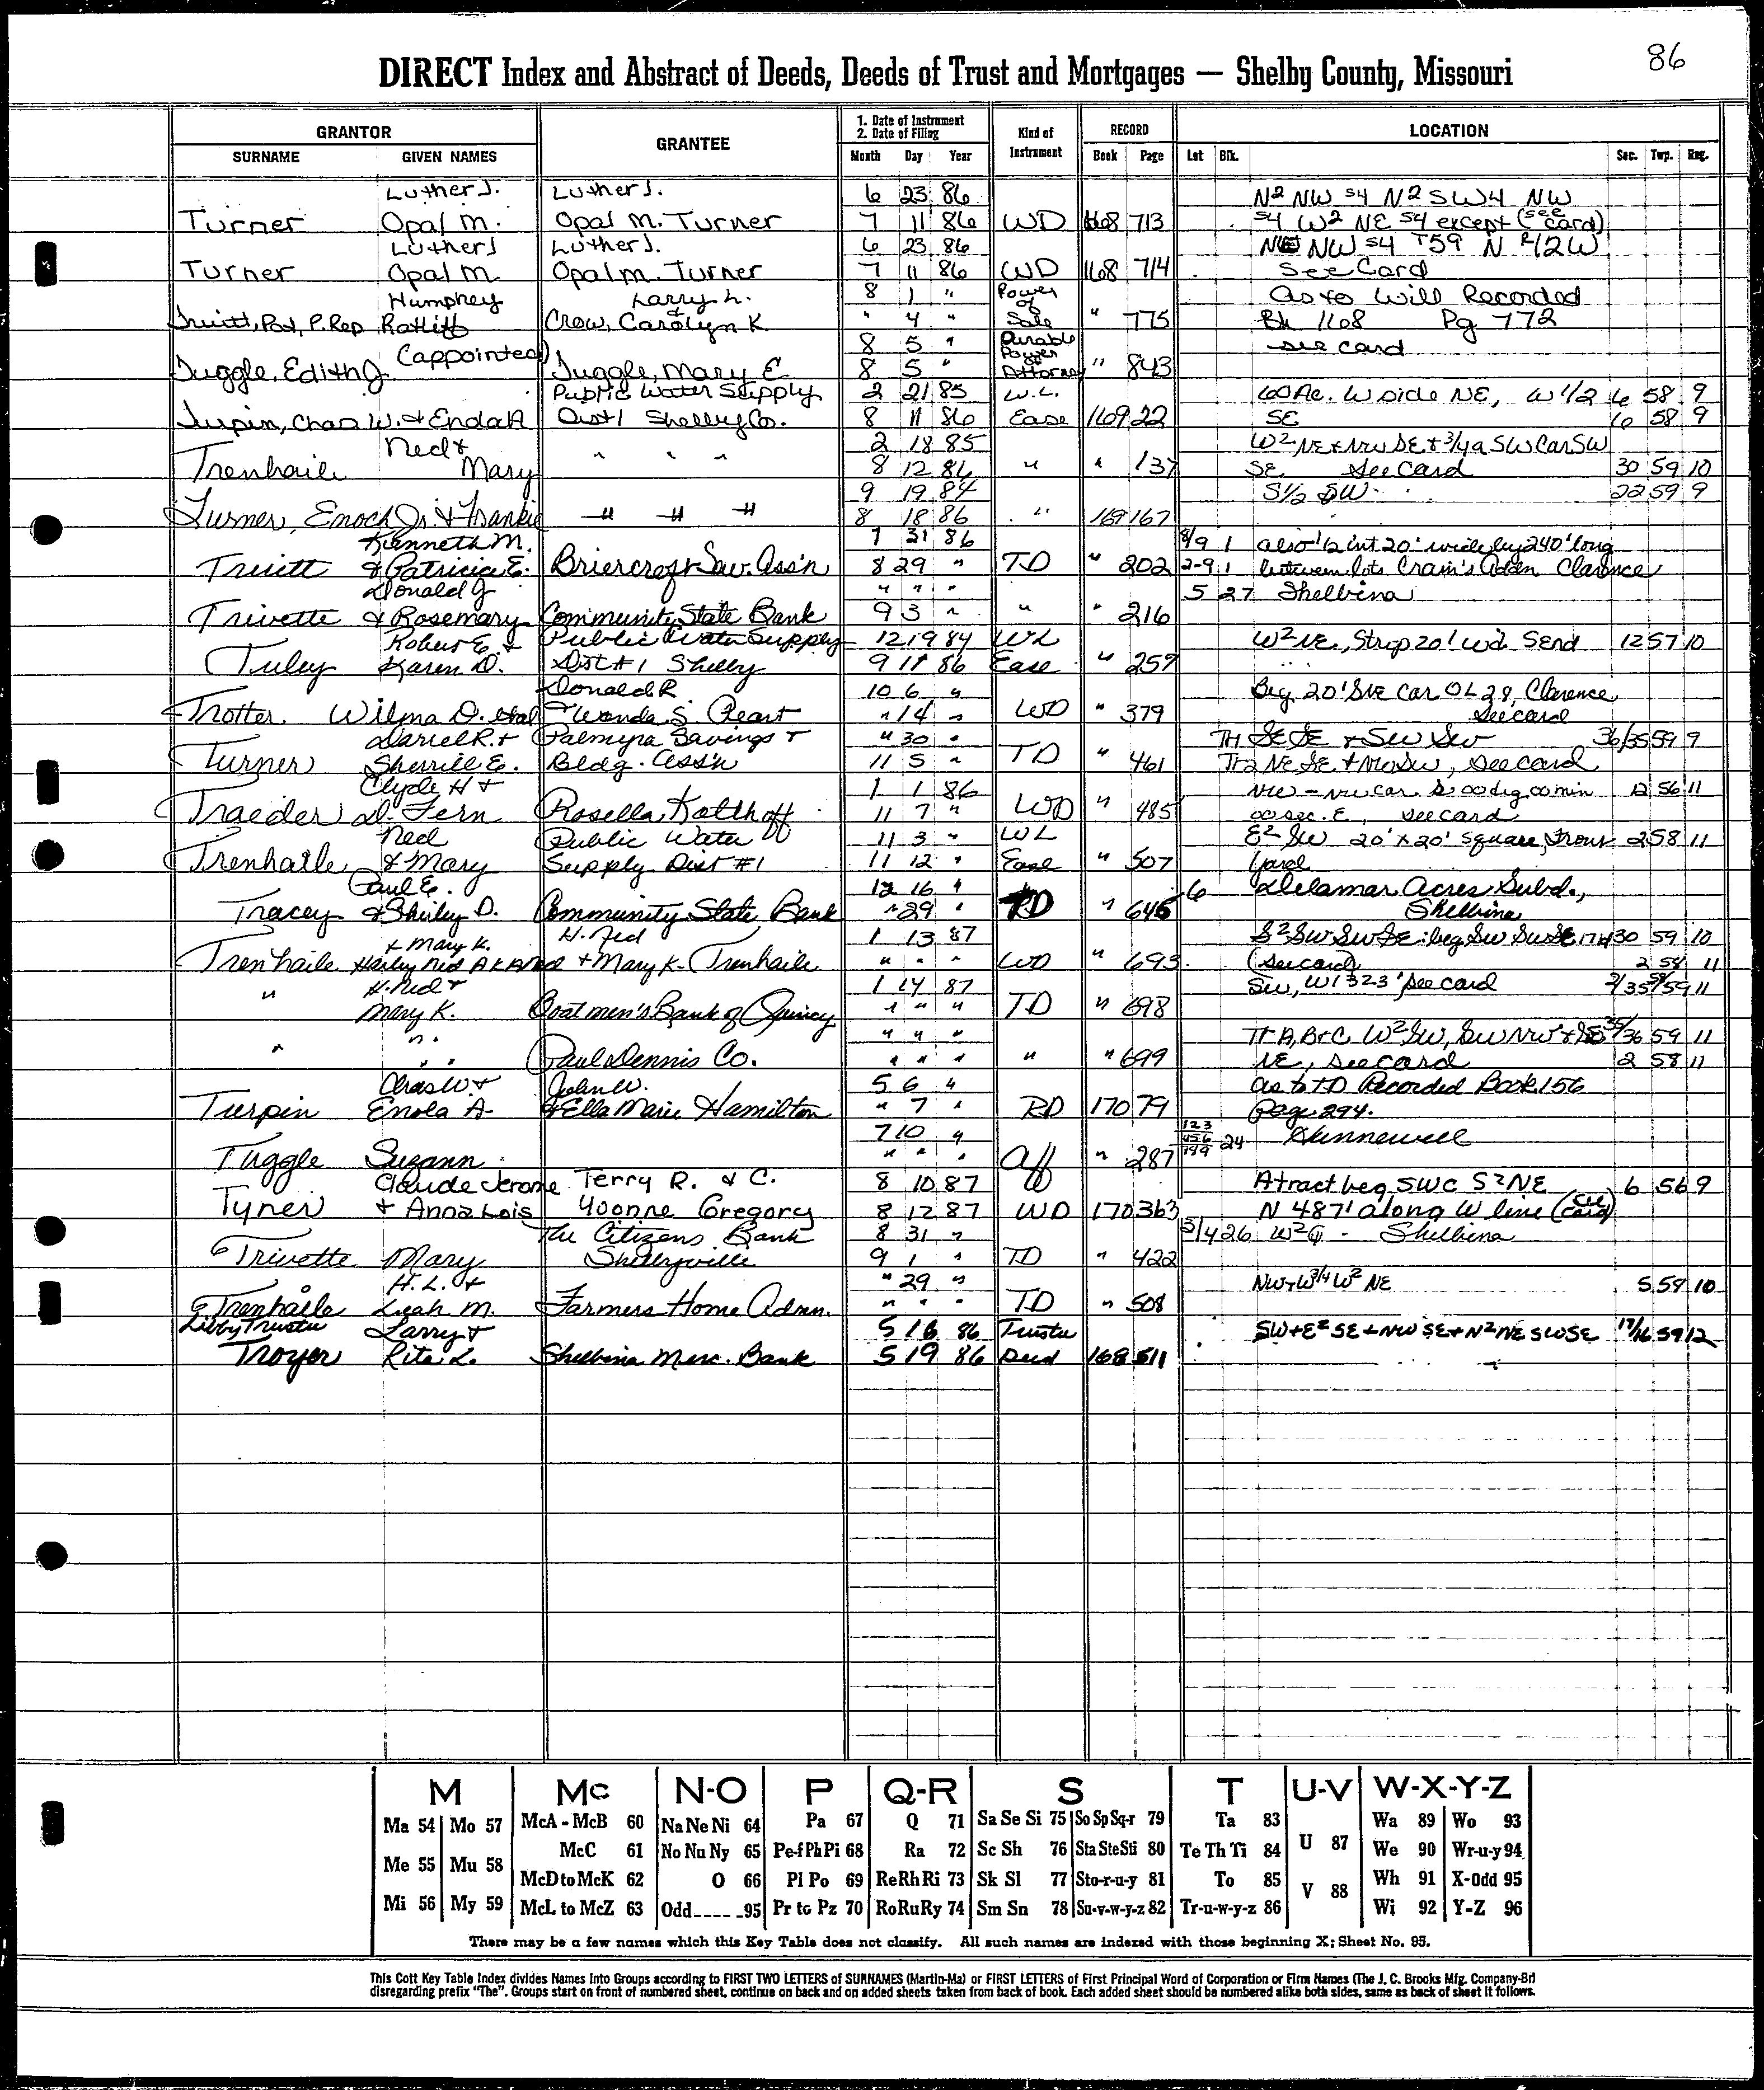 86
DIRECT Index and Abstract of Deeds, Deeds of Trust and Mortgages — Shelby County, Missouri
GRANTOR GRANTEE 1. Date of Instrument 2. Date of Filing Kind of Instrument RECORD LOCATION
SURNAME GIVEN NAMES Month Day Year Book Page Lot Blk. Sec. Twp. Rng.
Luther J. Luther J. 6 23 86 N2 NW S4 N2 SW4 NW
Turner Opal M. Opal M. Turner 7 11 86 WD 168 713 S4 W2 NE S4 except (see card)
Luther J Luther J. 6 23 86 NW S4 T59 N R12W
Turner Opal M Opal M. Turner 7 11 86 WD 168 714 See Card
Humphey Larry L. 8 1 " Power of As to Will Recorded
Truitt, Pat, P. Rep Ratliff Crow, Carolyn K " 4 " Sale " 775 Bk 1168 Pg 772
(appointed) 8 5 " Durable Power of see card
Tuggle, Edith J. Tuggle, Mary E 8 5 " Attorney " 843
Public Water Supply 2 21 85 W.L. 60 Ac. W side NE, W 1/2 6 58 9
Turpin, Chas W. & Enola A Dist 1 Shelby Co. 8 11 86 Ease 169 22 SE 6 58 9
Ned & 2 18 85 W2 NE & NW SE & 3/4 a SW Cor SW
Trenhaile Mary " " " 8 12 86 " " 137 SE See Card 30 59 10
9 19 84 S 1/2 SW 22 59 9
Turner, Enoch Jr. & Frankie " " " 8 18 86 " 169 167
Kenneth M. 7 31 86 8/9 1 also 1/2 int 20' wide by 240' long
Truitt & Patricia E. Briercroft Sav. Ass'n 8 29 " TD " 202 2-9 1 between lots Crain's Addn Clarence
Donald J " " " 5 27 Shelbina
Trivette & Rosemary Community State Bank 9 3 " " " 216
Robert E. & Public Water Supply 12 19 84 WL W2 NE, Strip 20' wd. S end 12 57 10
Tuley Karen D. Dist #1 Shelby 9 11 86 Ease " 259
Donald R 10 6 " Beg 20' S NE cor OL 28, Clarence
Trotter Wilma D. etal & Wanda S. Peart " 14 " WD " 379 See card
Dariel R. & Palmyra Savings & " 30 " TH SE SE & SW SW 36/35 59 9
Turner Sherrill E. Bldg. Ass'n 11 5 " TD " 461 see card
Clyde H & 1 1 86 NW - NW cor S 00 deg 00 min 12 56 11
Traeder D. Fern Rosella Kolthoff 11 7 " WD " 485 00 sec. E, see card
Ned Public Water 11 3 " WL E2 SW 20' x 20' square, 2 58 11
Trenhaile & Mary Supply Dist #1 11 12 " Ease " 507 Yard
Paul E. 12 16 " 6 Delamar Acres Subd.,
Tracey & Shirley D. Community State Bank " 29 " TD " 645 Shelbina
& Mary K. H. Ned 1 13 87 S2 SW SW SE: beg SW SW SE 30 59 10
Trenhaile Harley Ned AKA Ned & Mary K. Trenhaile " " " WD " 693 (see card) 2 58 11
" H. Ned & 1 14 87 SW, W1323' see card
Mary K. Boatmen's Bank of Quincy " " " TD " 698
" " " " " Tr A, B & C W2 SW, SW NW & SE 35/36 59 11
" " Paul Dennis Co. " " " " " 699 NE, see card 2 58 11
Chas W & John W. 5 6 " as to TD Recorded Book 156
Turpin Enola A & Ella Marie Hamilton " 7 " RD 170 79 Page 294.
7 10 " 123 456 24 Hunnewell
Tuggle Suzann " " " Aff " 287
Claude Jerome Terry R. & C. 8 10 87 A tract beg SWC S2NE 6 56 9
Tyner & Anna Lois Yvonne Gregory 8 12 87 WD 170 363 N 487' along W line (See Card)
The Citizens Bank 8 31 " 3/4 26 W2 - Shelbina
Trivette Mary Shelbyville 9 1 " TD " 422
H. L. & " 29 " NW & W 3/4 W2 NE 5 59 10
Trenhaile Leah M. Farmers Home Admn. " " " TD " 508
Libby Trustee Larry & 5 16 86 Trustee SW & E2 SE & NW SE & N2 NE SW SE 17/16 59 12
Troyer Rita L. Shelbina Merc. Bank 5 19 86 Deed 168 511
M Mc N-O P Q-R S T U-V W-X-Y-Z
Ma 54 Mo 57 McA - McB 60 Na Ne Ni 64 Pa 67 Q 71 Sa Se Si 75 So Sp Sq-r 79 Ta 83 Wa 89 Wo 93
McC 61 No Nu Ny 65 Pe-f Ph Pi 68 Ra 72 Sc Sh 76 Sta Ste Sti 80 Te Th Ti 84 U 87 We 90 Wr-u-y 94
Me 55 Mu 58 McD to McK 62 O 66 Pl Po 69 Re Rh Ri 73 Sk Sl 77 Sto-r-u-y 81 To 85 V 88 Wh 91 X-Odd 95
Mi 56 My 59 McL to McZ 63 Odd____95 Pr to Pz 70 Ro Ru Ry 74 Sm Sn 78 Su-v-w-y-z 82 Tr-u-w-y-z 86 Wi 92 Y-Z 96
There may be a few names which this Key Table does not classify. All such names are indexed with those beginning X; Sheet No. 95.
This Cott Key Table Index divides Names Into Groups according to FIRST TWO LETTERS of SURNAMES (Martin-Ma) or FIRST LETTERS of First Principal Word of Corporation or Firm Names (The J. C. Brooks Mfg. Company-Br)
disregarding prefix "The". Groups start on front of numbered sheet, continue on back and on added sheets taken from back of book. Each added sheet should be numbered alike both sides, same as back of sheet it follows.